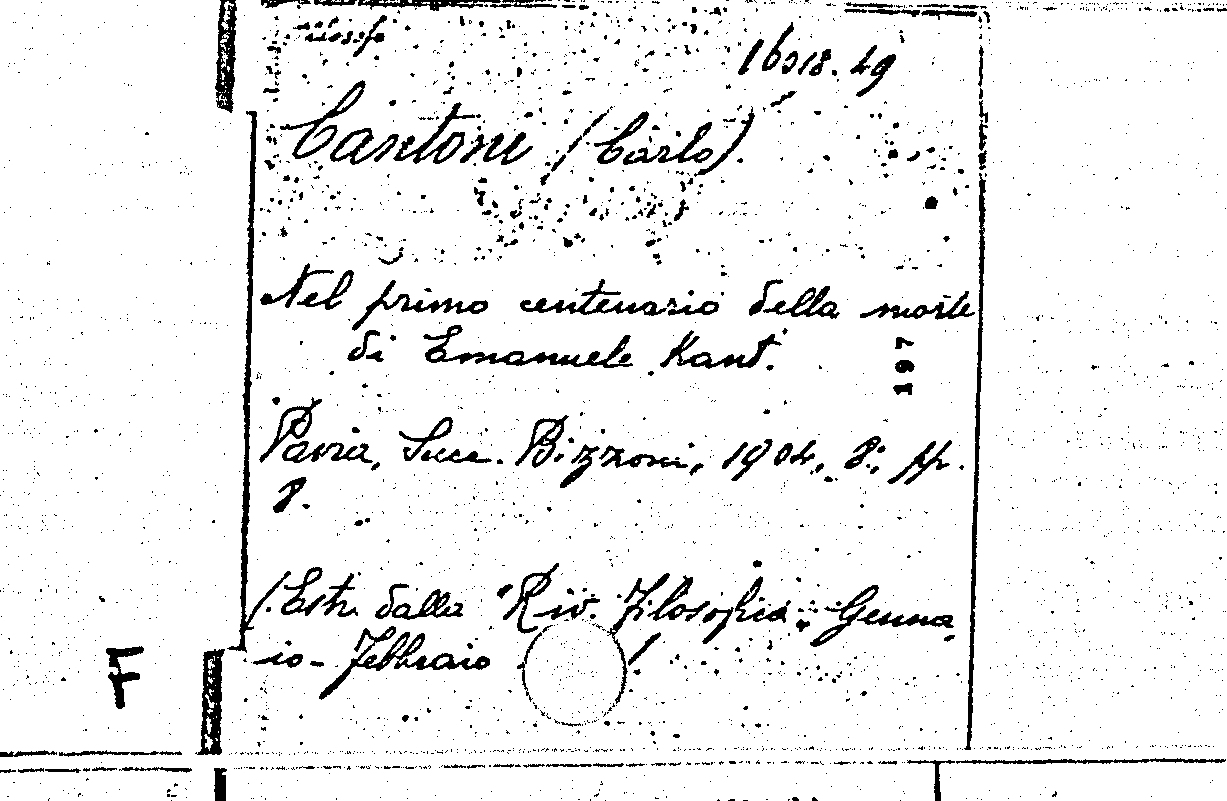 Cantoni (Carlo).
Nel primo centenario della morte
di Emanuele Kant.
197
Pavia, Succ. Bizzoni, 1904, 8°, pp.
8.
(Estr. dalla "Riv. Filosofia" Genna
io - Febbraio )
F